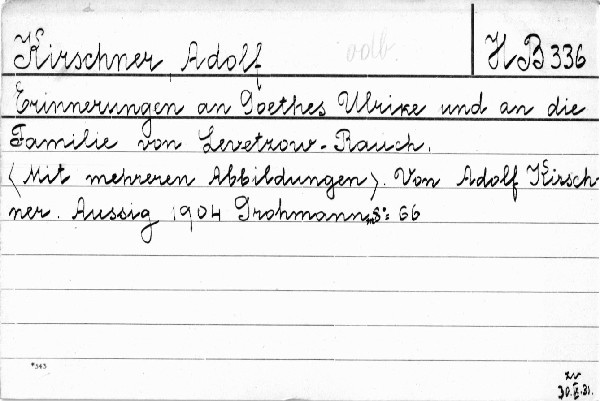 Kirschner, Adolf
odb.
H B 336
Erinnerungen an Goethes Ulrike und an die
Familie von Levetzow-Rauch.
<Mit mehreren Abbildungen>. Von Adolf Kirsch-
ner. Aussig 1904 Grohmann 8° 66
*343